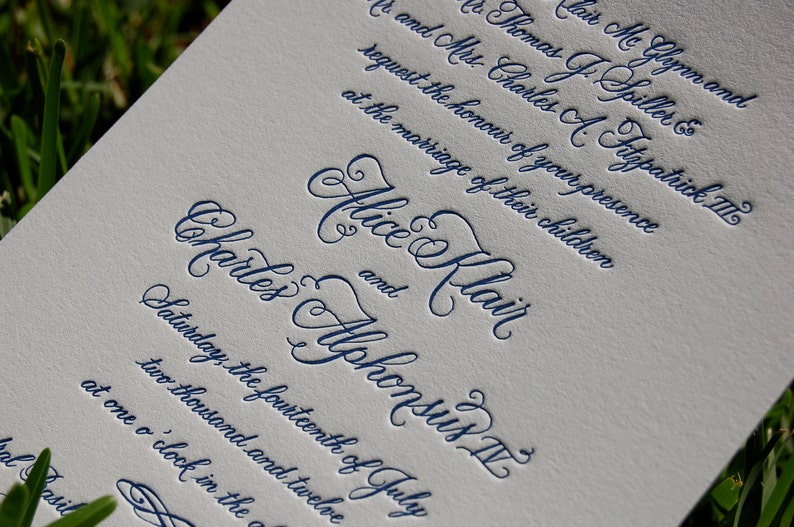 Klair M. Glynn and
Mr. Thomas J. Spiller &
Mr. and Mrs. Charles A. Fitzpatrick III
request the honour of your presence
at the marriage of their children
Alice Klair
and
Charles Alphonsus IV
Saturday, the fourteenth of July
two thousand and twelve
at one o'clock in the